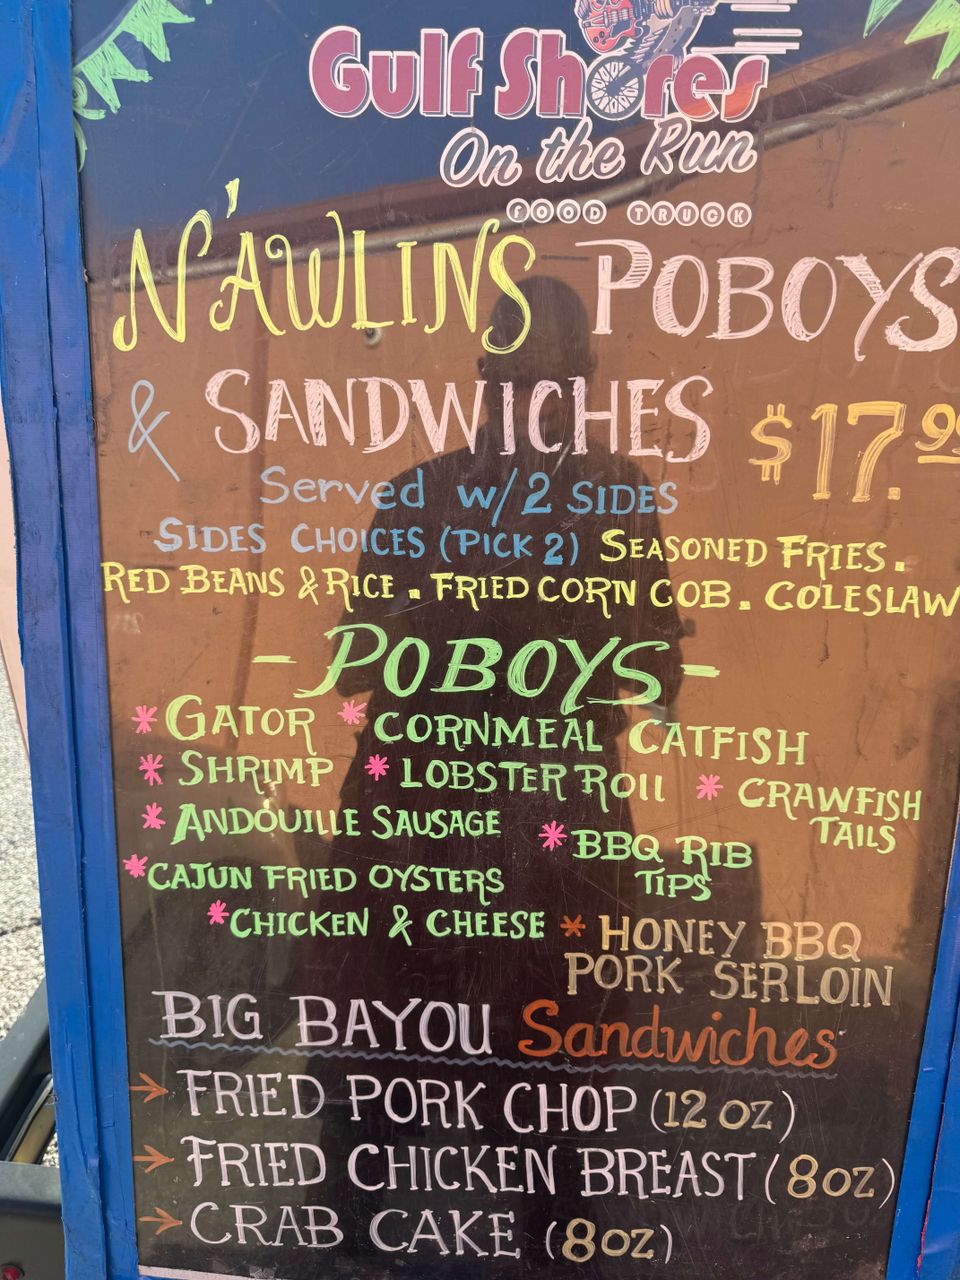 Gulf Shores
On the Run
FOOD TRUCK
N'AWLINS POBOYS
& SANDWICHES $17.
Served w/ 2 SIDES
SIDES CHOICES (PICK 2) SEASONED FRIES.
RED BEANS & RICE . FRIED CORN COB . COLESLAW
- POBOYS -
* GATOR * CORNMEAL CATFISH
* SHRIMP * LOBSTER ROLL * CRAWFISH TAILS
* ANDOUILLE SAUSAGE * BBQ RIB TIPS
* CAJUN FRIED OYSTERS
* CHICKEN & CHEESE * HONEY BBQ
PORK SERLOIN
BIG BAYOU Sandwiches
→ FRIED PORK CHOP (12 OZ)
→ FRIED CHICKEN BREAST (8OZ)
→ CRAB CAKE (8OZ)